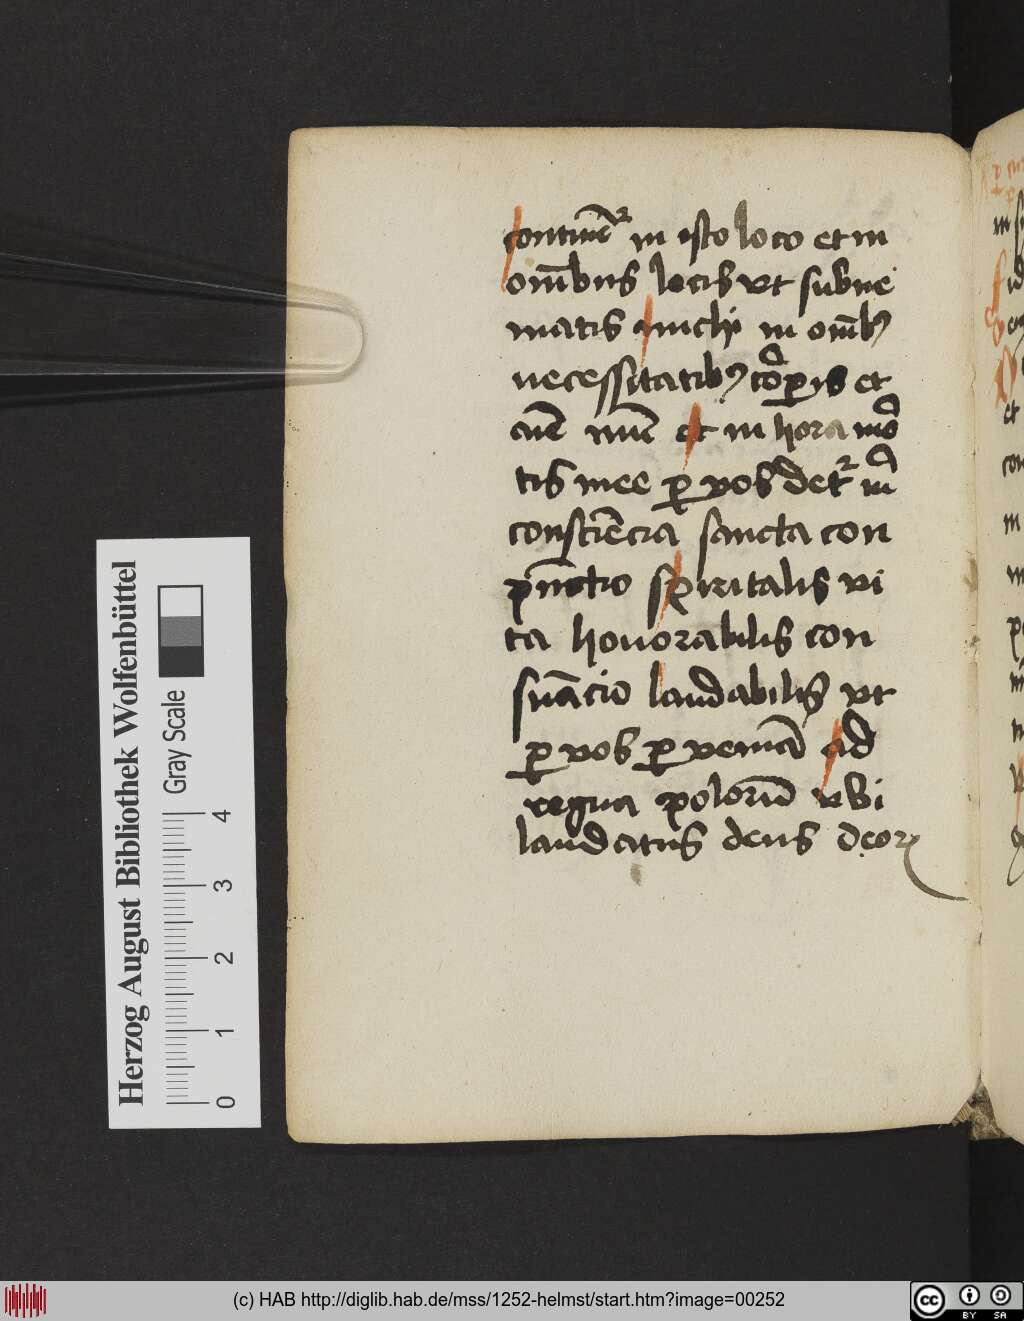 continēt² in isto loco et in
om̄ibus locis vt subue
niatis michi in om̄ibꝰ
necessitatibꝰ cor̄ꝑis et
aīe mee et in hora mor
tis mee ꝑ vos det² m̄
consciēcia sancta con
pūctio spiritalis vi
ta honorabilis con
suācio laudabilis vt
ꝑ vos ꝑveniā ad
regna poloru̅ vbi
laudatus deus deoꝝ
Herzog August Bibliothek Wolfenbüttel
Gray Scale
0 1 2 3 4
(c) HAB http://diglib.hab.de/mss/1252-helmst/start.htm?image=00252
cc BY SA